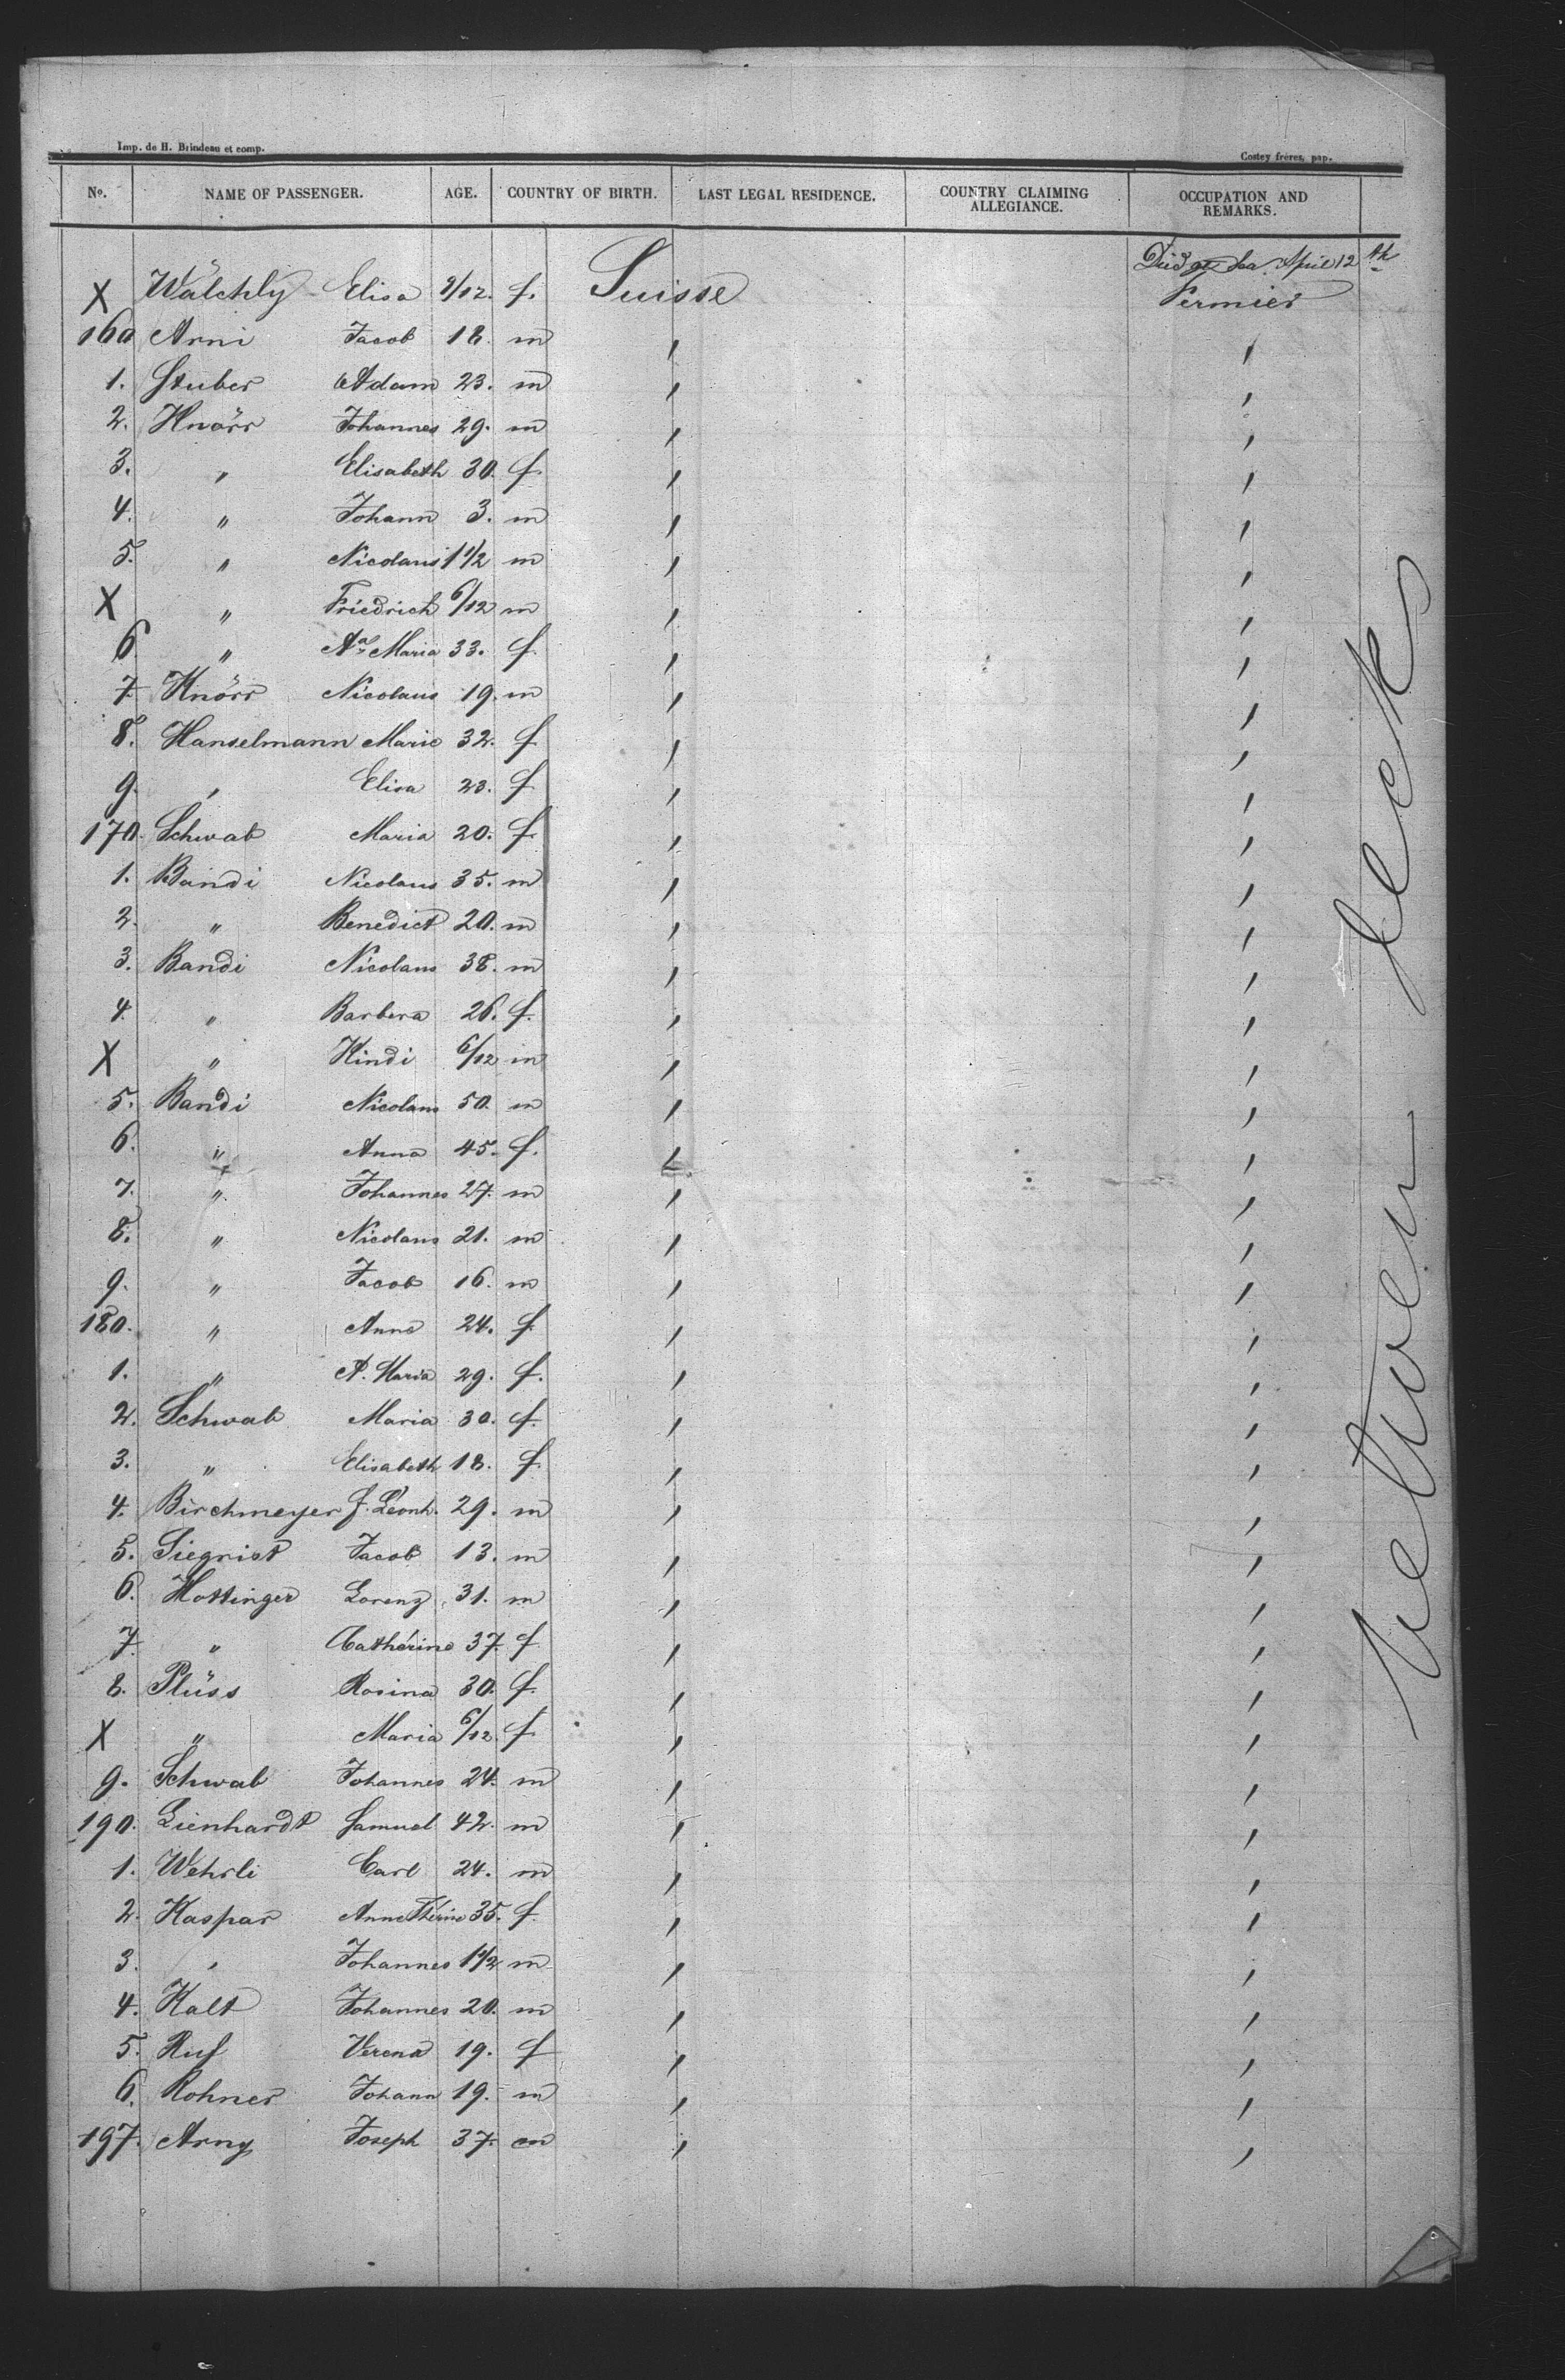 Imp. de H. Brindeau et comp.
Costey frères, pap.
No. NAME OF PASSENGER. AGE. COUNTRY OF BIRTH. LAST LEGAL RESIDENCE. COUNTRY CLAIMING ALLEGIANCE. OCCUPATION AND REMARKS.
Died at Sea April 12th
X Wälchly Elisa 9/12. f. Suisse Fermier
160 Arni Jacob 18. m " "
1. Stuber Adam 23. m " "
2. Knörr Johannes 29. m " "
3. " Elisabeth 30. f. " "
4. " Johann 3. m " "
5. " Nicolaus 1 1/2 m " "
X " Friedrich 6/12 m " "
6 " Aa Maria 33. f. " "
7. Knörr Nicolaus 19. m " "
8. Hanselmann Marie 32. f " "
9. " Elisa 23. f " "
170. Schwab Maria 20. f. " "
1. Bandi Nicolaus 35. m " "
2. " Benedict 20. m " "
3. Bandi Nicolaus 38. m " "
4. " Barbera 26. f. " "
X " Kindi 6/12 m " "
5. Bandi Nicolaus 50. m " "
6. " Anna 45. f. " "
7. " Johannes 27. m " "
8. " Nicolaus 21. m " "
9. " Jacob 16. m " "
180. " Anna 24. f. " "
1. " A. Maria 29. f. " "
2. Schwab Maria 30. f. " "
3. " Elisabeth 18. f. " "
4. Birchmeyer J. Léonh. 29. m " "
5. Siegrist Jacob 13. m " "
6. Hottinger Lorenz 31. m " "
7. " Cathérine 37. f " "
8. Plüss Rosina 30. f. " "
X " Maria 6/12. f " "
9. Schwab Johannes 24. m " "
190. Lienhardt Samuel 42. m " "
1. Wehrli Carl 24. m " "
2. Kaspar Anne Thérine 35. f. " "
3. " Johannes 1 1/2 m " "
4. Kalt Johannes 20. m " "
5. Ruf Verena 19. f " "
6. Rohner Johann 19. m " "
197. Arny Joseph 37. m " "
between decks